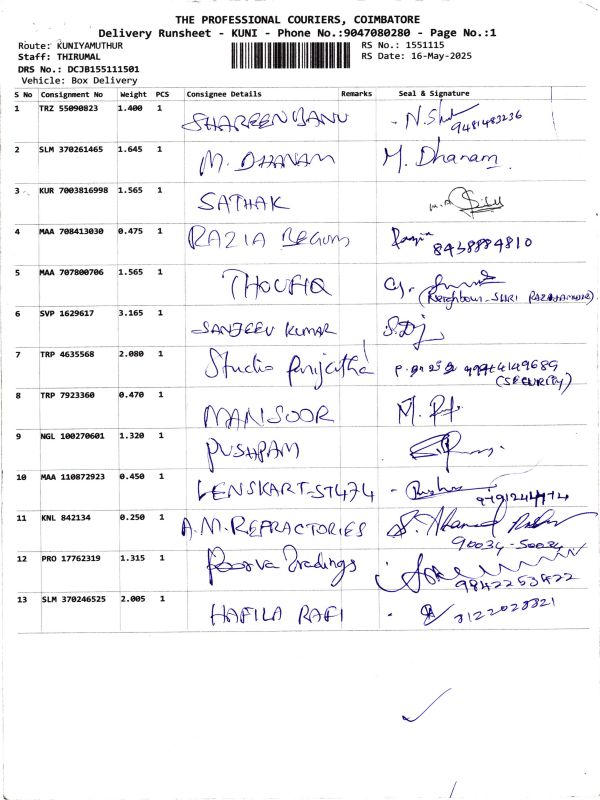 THE PROFESSIONAL COURIERS, COIMBATORE
Delivery Runsheet - KUNI - Phone No.:9047080280 - Page No.:1
Route: KUNIYAMUTHUR RS No.: 1551115
Staff: THIRUMAL RS Date: 16-May-2025
DRS No.: DCJB155111501
Vehicle: Box Delivery
S No Consignment No Weight PCS Consignee Details Remarks Seal & Signature
1 TRZ 55090823 1.400 1 SHAREEN BANU - N.
9481483236
2 SLM 370261465 1.645 1 M. DHANAM M. Dhanam
3 KUR 7003816998 1.565 1 SATHAK
4 MAA 708413030 0.475 1 RAZIA BEGUM Razia
8438884810
5 MAA 707800706 1.565 1 THOUFIQ
(Neighbour - SHRI
6 SVP 1629617 3.165 1 SANJEEV KUMAR
7 TRP 4635568 2.080 1 Studio Parijatha
(SECURITY)
8 TRP 7923360 0.470 1 MANSOOR M.
9 NGL 100270601 1.320 1 PUSHPAM
10 MAA 110872923 0.450 1 LENSKART-ST474 -
11 KNL 842134 0.250 1 A.M.REFRACTORIES
90034-50034
12 PRO 17762319 1.315 1 Poorva Tradings
9842253422
13 SLM 370246525 2.005 1 HAFILA RAFI -
8122028821